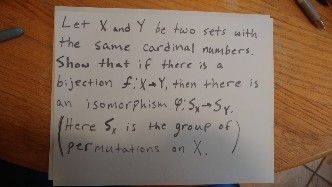 Let X and Y be two sets with
the same cardinal numbers.
Show that if there is a
bijection f: X→Y, then there is
an isomorphism φ: Sₓ→Sᵧ.
(Here Sₓ is the group of
permutations on X.)